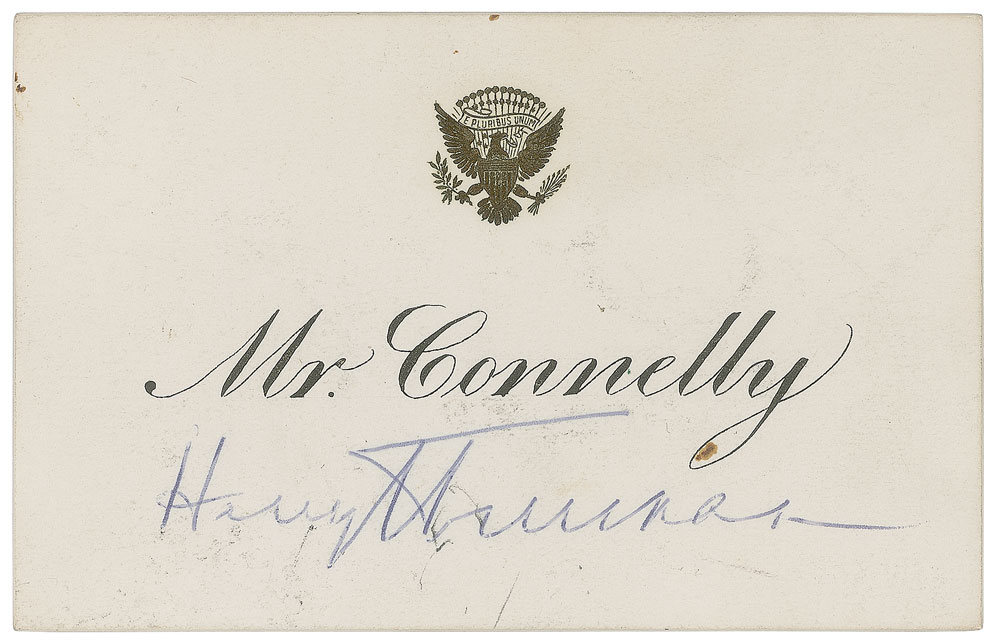 E PLURIBUS UNUM
Mr. Connelly
Harry Truman